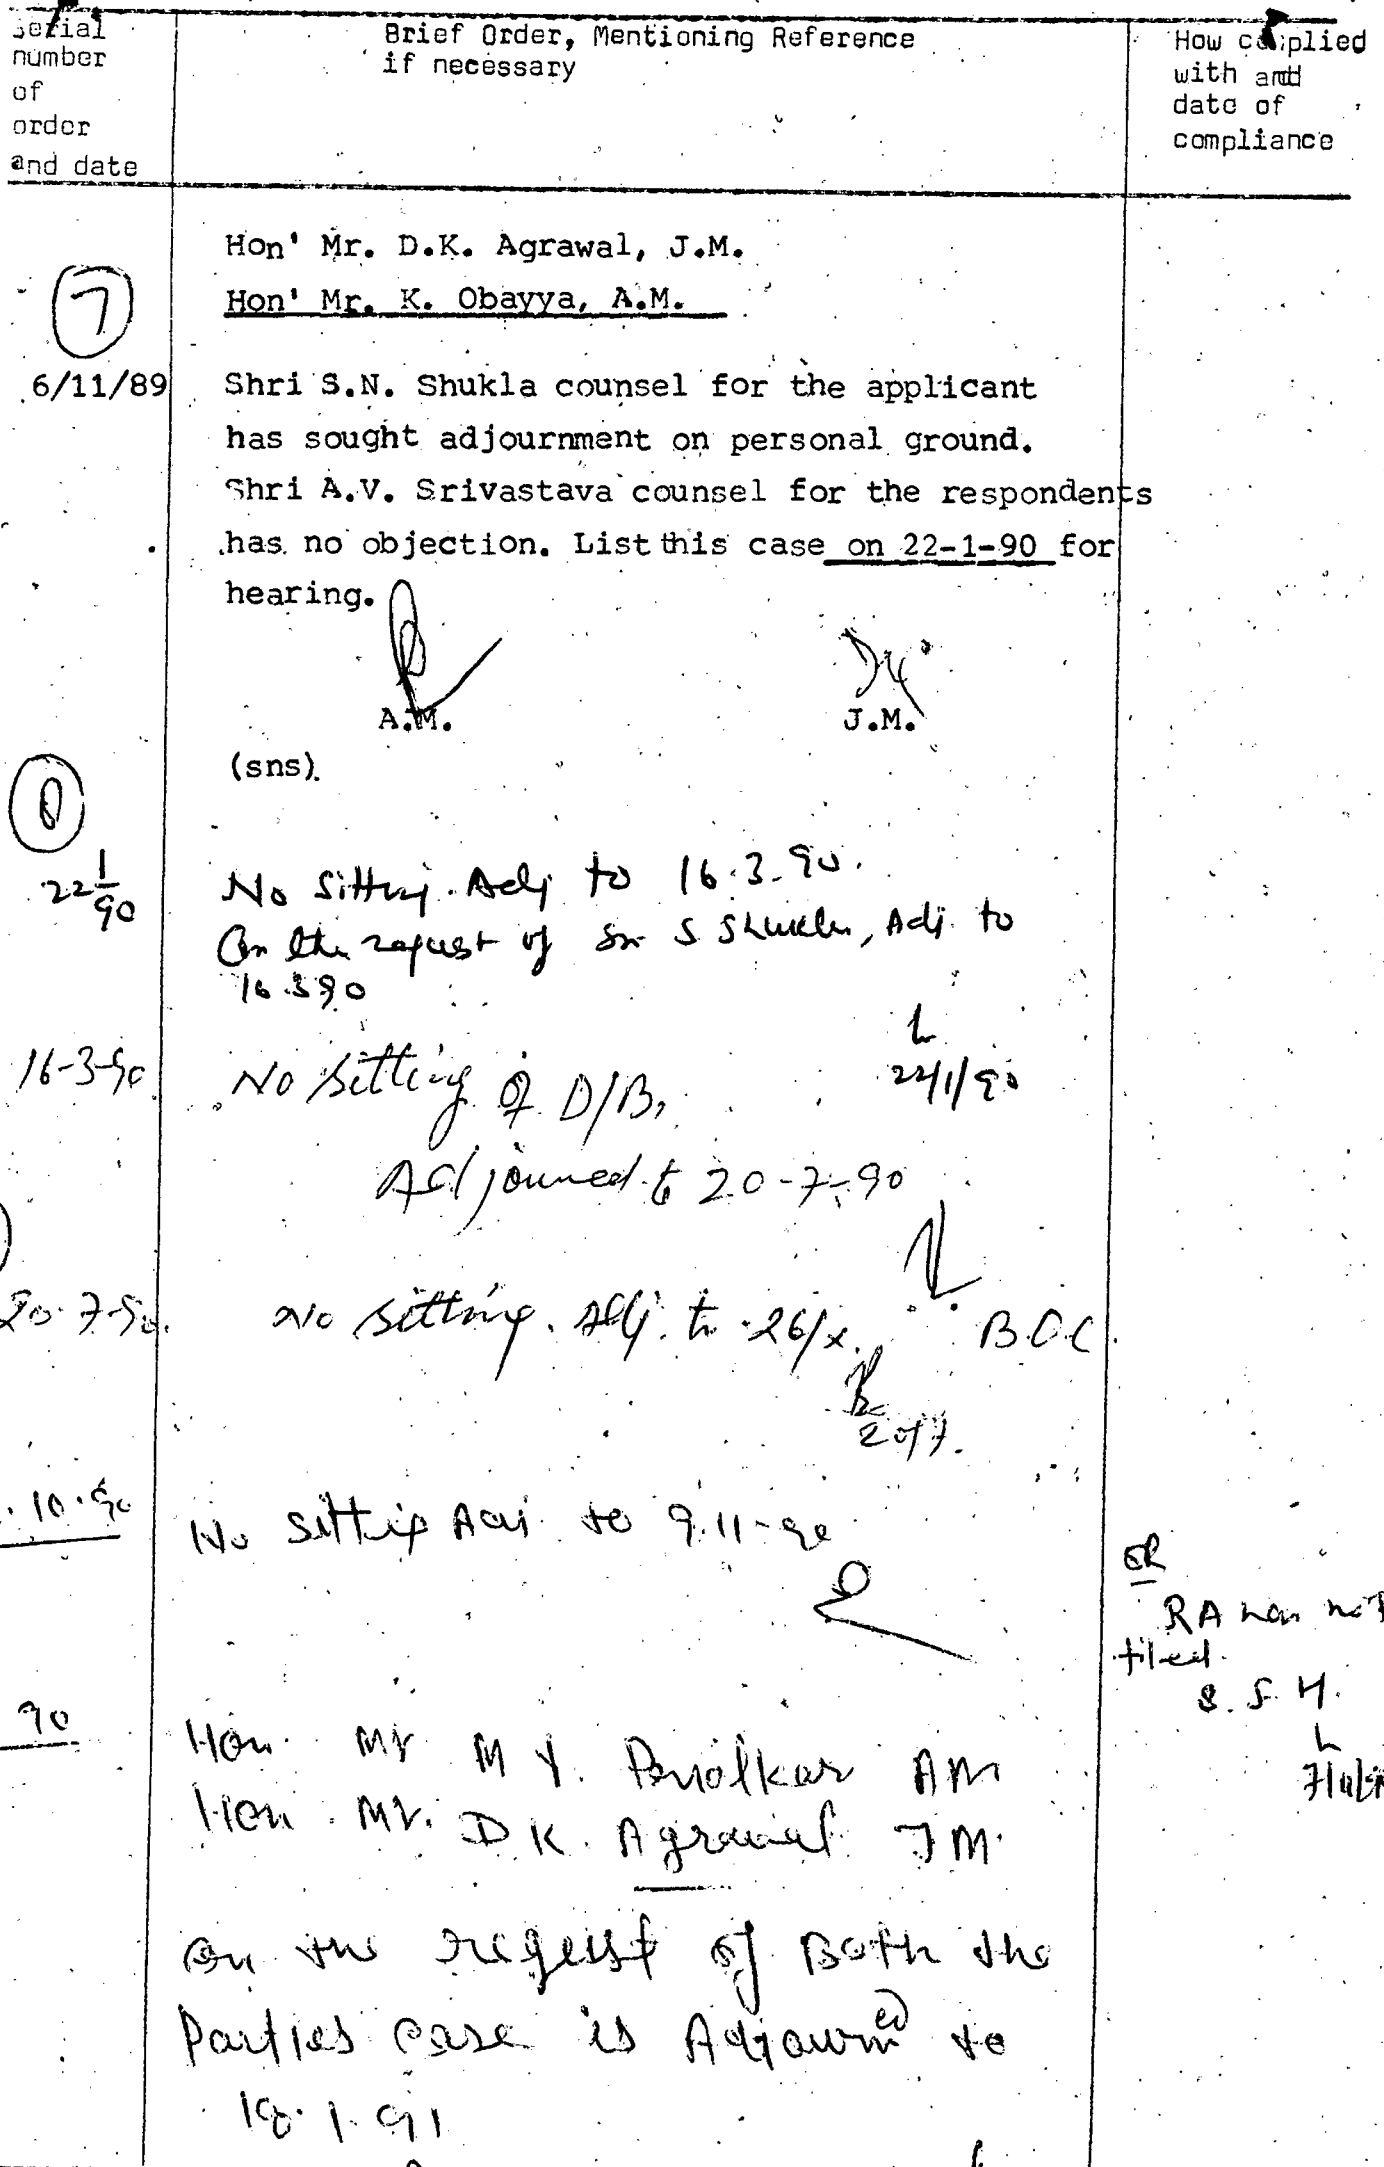 Serial
number
of
order
and date
Brief Order, Mentioning Reference
if necessary
How complied
with and
date of
compliance
Hon' Mr. D.K. Agrawal, J.M.
Hon' Mr. K. Obayya, A.M.
7
6/11/89
Shri S.N. Shukla counsel for the applicant
has sought adjournment on personal ground.
Shri A.V. Srivastava counsel for the respondents
has no objection. List this case on 22-1-90 for
hearing.
A.M.
J.M.
(sns).
22 1/90
No Sitting. Adj to 16.3.90.
On the request of Sri S Shukla, Adj. to
16.3.90
22/1/90
16-3-90
No sitting of D/B,
Adjourned to 20-7-90
20.7.90.
No sitting. Adj. to 26/x.
B.O.C.
20/7.
.10.90
No sitting Adj. to 9.11-90
OR
RA was not
filed.
S.F.H.
90
Hon. Mr M Y. Priolkar AM
Hon. Mr. D K. Agrawal JM.
On the request of Both the
Parties case is Adjourned to
18.1.91